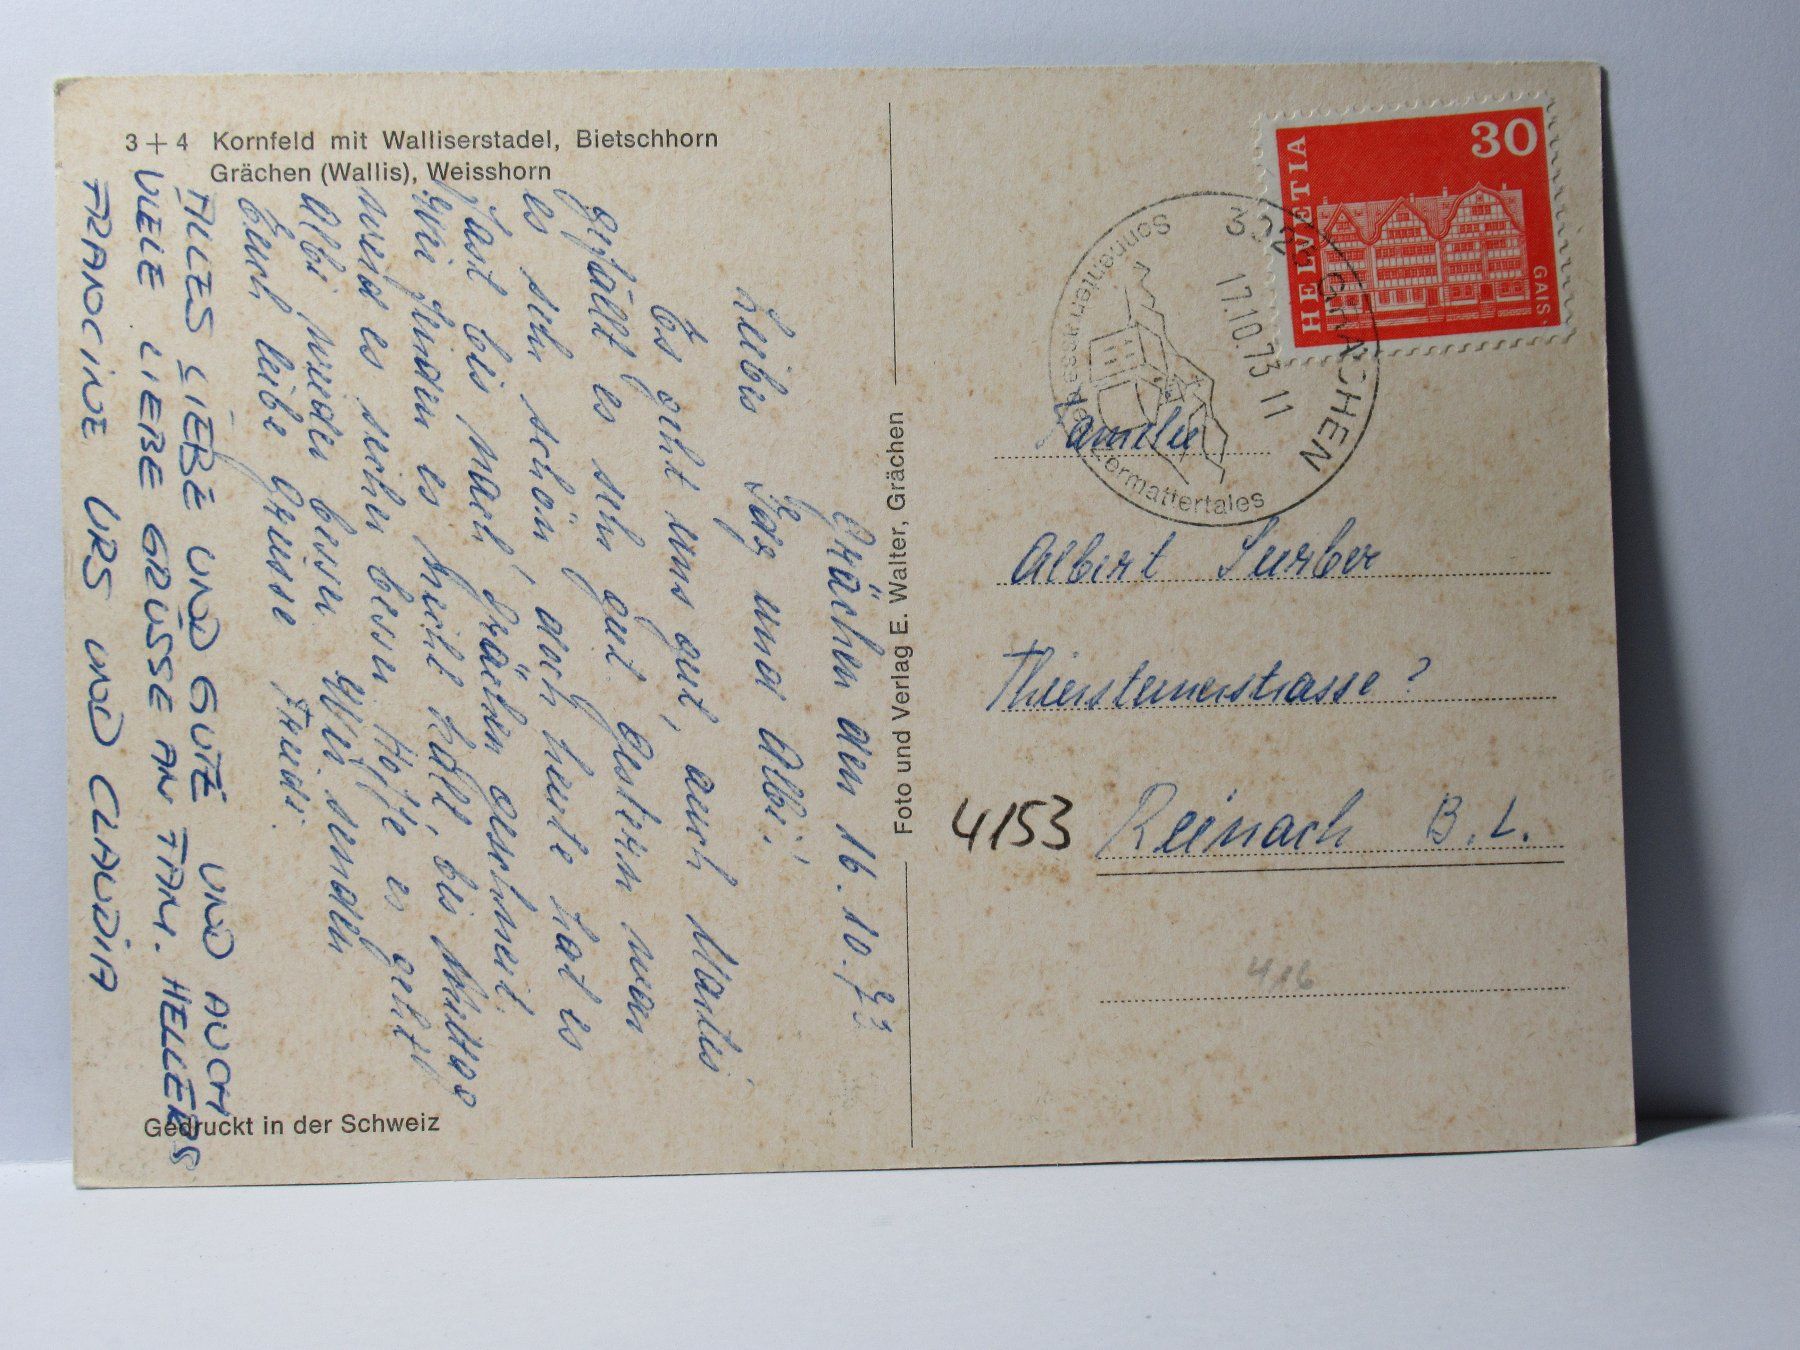 3+4 Kornfeld mit Walliserstadel, Bietschhorn
Grächen (Wallis), Weisshorn
Grächen den 16.10.73
und Albi!
Es geht uns gut, auch
gefällt es sehr gut. Gestern war
es sehr schön, doch heute hat es
fast bis nach Grächen geschneit.
Wir finden es nicht kalt, bis
wird es sicher besser. Hoffe es geht
Albi wieder besser. Wir senden
Euch liebe Grüsse
ALLES LIEBE UND GUTE UND AUCH
VIELE LIEBE GRÜSSE AN FAM. HELLERS
FRANCINE URS UND CLAUDIA
Gedruckt in der Schweiz
Foto und Verlag E. Walter, Grächen
HELVETIA
30
GAIS
GRÄCHEN
17.10.73 11
Sonnenterrasse des Zermattertales
Familie
Albert Surber
Thiersteinerstrasse ?
4153 Reinach B.L.